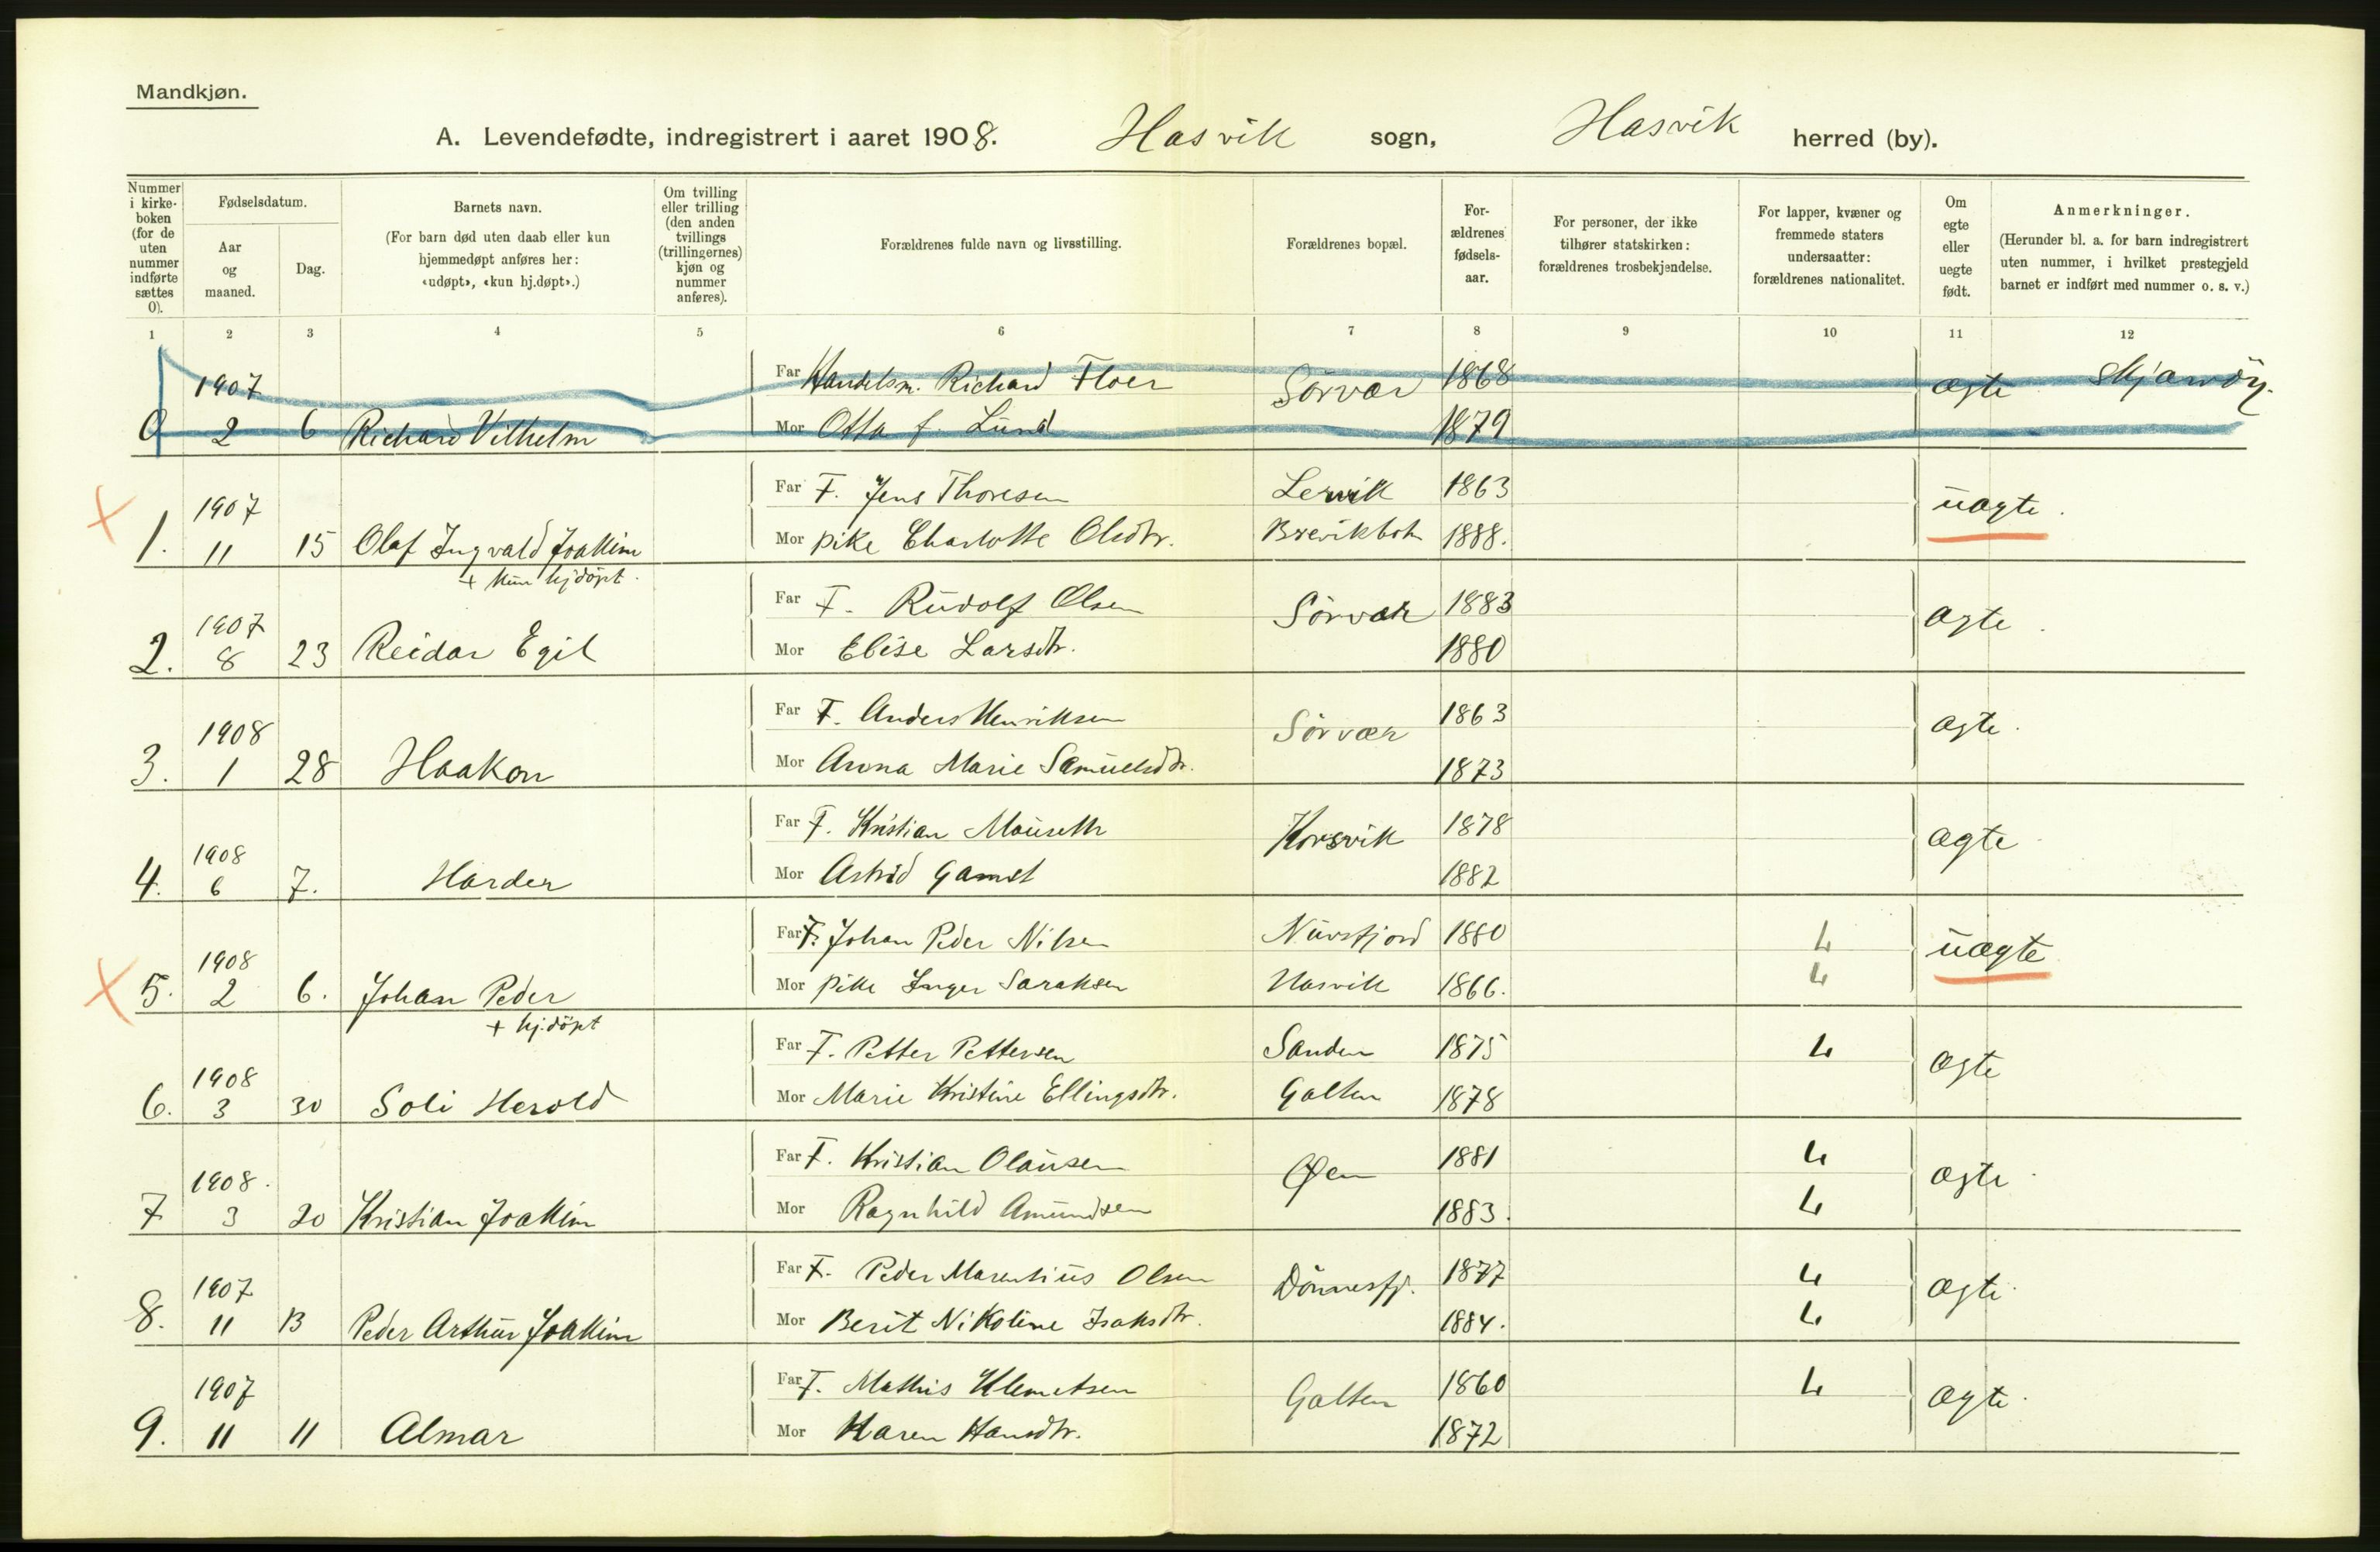 Mandkjøn.
A. Levendefødte, indregistrert i aaret 1908. Hasvik sogn, Hasvik herred (by).
Nummer i kirke-boken (for de uten nummer indførte sættes 0).
Fødselsdatum.
Aar og maaned.
Dag.
Barnets navn.
(For barn død uten daab eller kun hjemmedøpt anføres her: «udøpt», «kun hj.døpt».)
Om tvilling eller trilling (den anden tvillings (trillingernes) kjøn og nummer anføres).
Forældrenes fulde navn og livsstilling.
Forældrenes bopæl.
For-ældrenes fødsels-aar.
For personer, der ikke tilhører statskirken: forældrenes trosbekjendelse.
For lapper, kvæner og fremmede staters undersaatter: forældrenes nationalitet.
Om egte eller uegte født.
Anmerkninger.
(Herunder bl. a. for barn indregistrert uten nummer, i hvilket prestegjeld barnet er indført med nummer o. s. v.)
1 2 3 4 5 6 7 8 9 10 11 12
1907 Far Handelsm. Richard Floer Sörvær 1868 ægte Skjærvöy.
0 2 6 Richard Vilhelm Mor Otta f. Lund 1879
1907 Far F. Jens Thoresen Lervik 1863 uægte.
1. 11 15 Olaf Ingvald Joakim Mor pike Charlotte Olsdtr. Brevikbotn 1888.
+ kun hjdöpt.
1907 Far F. Rudolf Olsen Sörvær 1883 ægte.
2. 8 23 Reidar Egil Mor Elise Larsdtr. 1880
1908 Far F. Anders Henriksen Sörvær 1863 ægte.
3. 1 28 Haakon Mor Anna Marie Samuelsdtr. 1873
1908 Far F. Kristian Mauseth Korsvik 1878 ægte
4. 6 7. Harder Mor Astrid Gamst 1882
1908 Far F. Johan Peder Nilsen Nuvsfjord 1880 L uægte
5. 2 6. Johan Peder Mor pike Inger Saraksen Hasvik 1866. L
+ hj.döpt
1908 Far F. Petter Pettersen Sanden 1875 L ægte
6. 3 30 Soli Herold Mor Marie Kristine Ellingsdtr. Galten 1878
1908. Far F. Kristian Olausen Øen 1881 L ægte
7 3 20 Kristian Joakim Mor Ragnhild Amundsen 1883. L
1907 Far F. Peder Marentius Olsen Dönnesfj. 1877 L ægte.
8. 11 13 Peder Arthur Joakim Mor Berit Nikoline Isaksdtr. 1884. L
1907 Far F. Mathis Klemetsen Galten 1860 L ægte.
9. 11 11 Almar Mor Karen Hansdtr. 1872